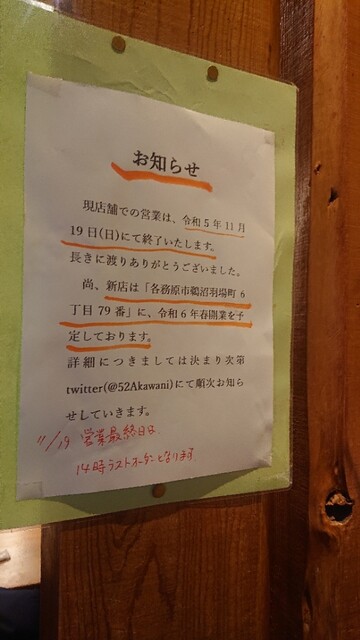 お知らせ
現店舗での営業は、令和5年11月
19日(日)にて終了いたします。
長きに渡りありがとうございました。
尚、新店は「各務原市鵜沼羽場町6
丁目79番」に、令和6年春開業を予
定しております。
詳細につきましては決まり次第
twitter(@52Akawani)にて順次お知ら
せしていきます。
11/19 営業最終日
14時ラストオーダーとなります